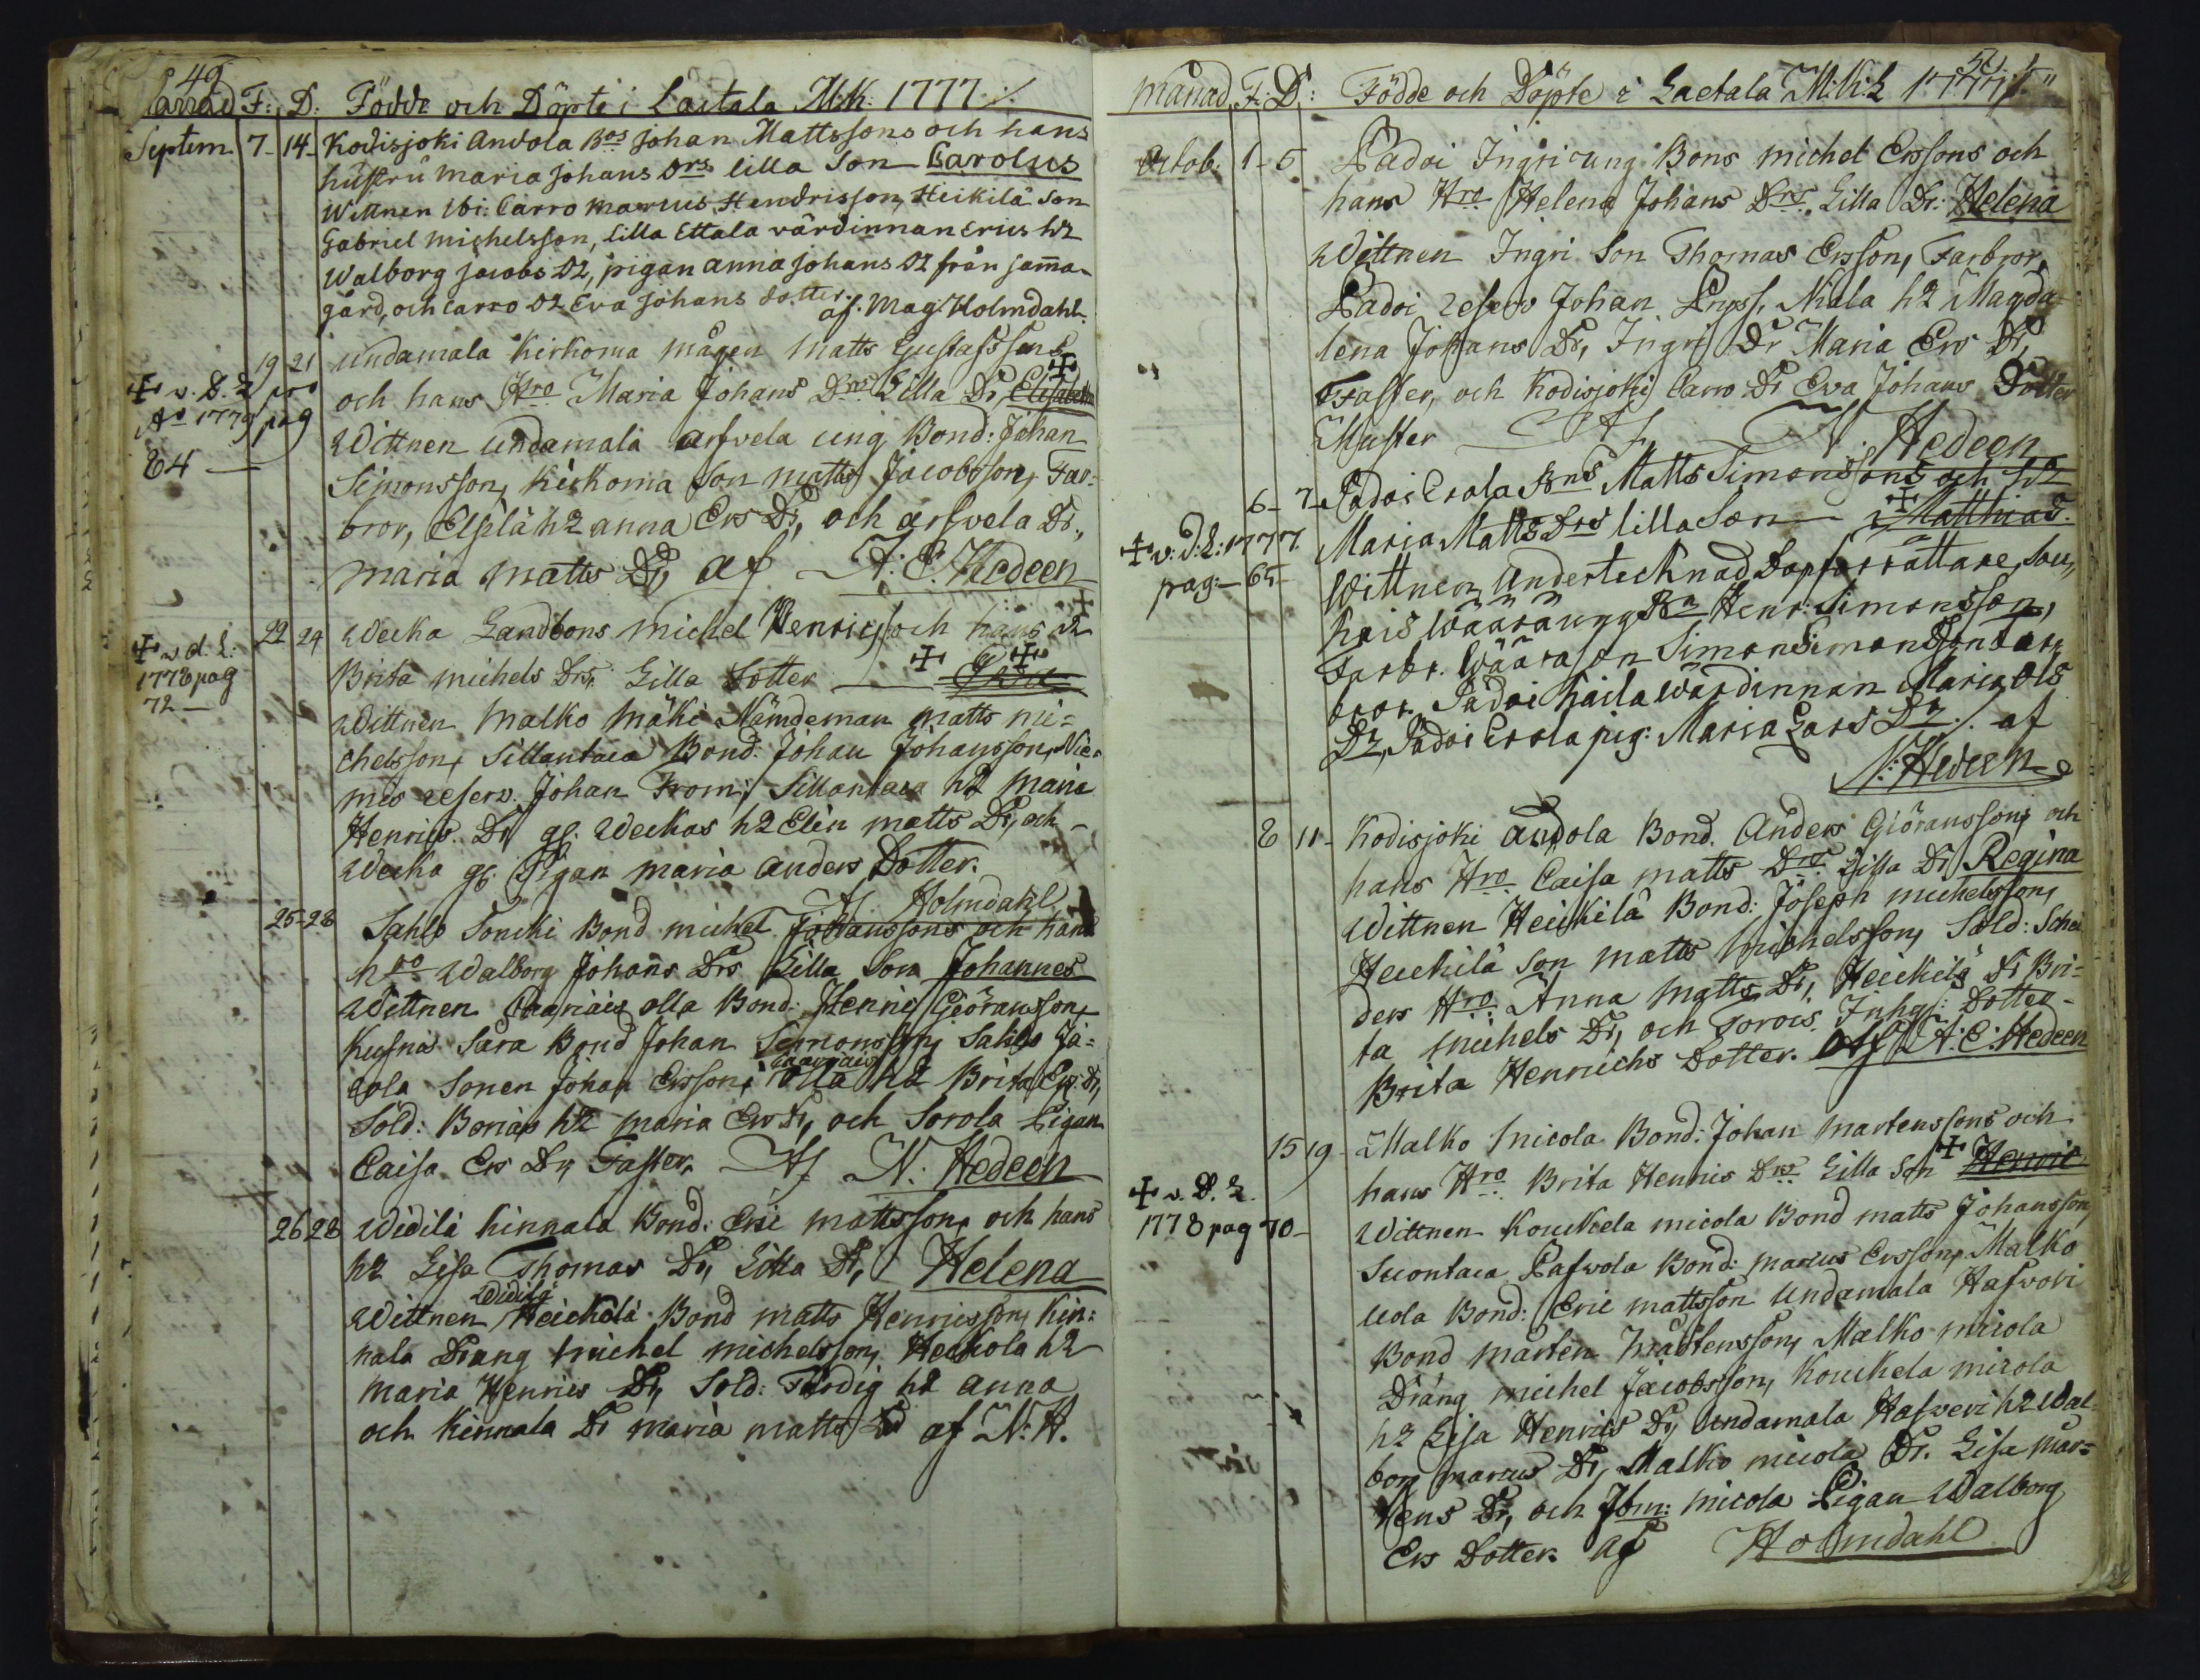 49
Månad F: D: Födde och Döpte i Laitala M:K: 1777 ./.
Septem. 7- 14- Kodisjoki Andola Bos Johan Mattssons och hans
hustru Maria Johans Drs lilla Son Carolus
Wittnen ibi: Carro Marcus Hendrisson, Heikilä Son
Gabriel Michelsson, Lilla Ettala värdinnan Erics h2
Walborg Jacobs D2, pigan Anna Johans D2 från sama-
gård, och Carro D2 Eva Johans dotter.
af. Mag: Holmdahl.
19 21 Undamala Kirkoma mågen Matts Gustafssons
✝ v. D. L pro
Ao 1779 pag
84 —
och hans Hro Maria Johans Drs Lilla Dr, Elisabetha
Wittnen Undamala arfvela ung Bond: Johan
Simonsson, Kirkoma Son Matts Jacobsson, Far-
bror, Elsilä h2 Anna Ers Dr, och arfvela Dr.,
Maria Matts Dr, af A: C. Hedeen
22 24 Wecka Landbons Michel Henrics och hans h2
✝ v. d. L:
1778 pag
72 —
Brita Michels Drs, Lilla Dotter
Wittnen Malko Mäki Nämdeman Matts Mi=
chelsson, Sillantaca Bond: Johan Johansson, Nie-
mis reserv. Johan From, Sillantaca h2 Maria
Henrics Dr gl. Weckas h2 Elin Matts Dr, och
Wecka gl. Pigan Maria Anders Dotter.
Af Holmdahl
25-28 Sahlo Boncki Bond Michel Johanssons och hans
hro Walborg Johans Drs Lilla Son Johannes
Wittnen olla Bond: Henric Giöransson,
Kusnis Sara Bond Johan Simonsson, Sahlo Ja=
cola Sonen Johan Ersson, olla h2 Brita Ers Dr,
Sold: h2 Maria Ers Dr, och Sorola Pigan
Caisa Ers Dr, Faster. Af N. Hedeen
26 28 Widilä Kinnala Bond: Eric Mattsson, och hans
h2 Lisa Thomas Dr, Lilla Dr, Helena
Widilä
Wittnen Heickilä Bond Matts Henricsson, Kin:
nala Drang Michel Michelsson, Heickola h2
Maria Henrics Dr, Sold: Färdig h2 Anna
och Kinnala Dr Maria Matts D af N. H.
Månad F: D: Födde och Döpte i Laetala M:K:L 1777 ./.
Octob. 1- 5 Padoi Ingri ung Bons Michel Erssons och
hans Hro Helena Johans Drs, Lilla Dr: Helena
Wittnen Ingri Son Thomas Ersson, Farbror,
Padoi reserv Johan Niala h2 Magda=
lena Johans Dr, Ingri Dr Maria Ers Dr,
Faster, och Kodisjoki Carro Dr Eva Johans Dotter
Muster Af N. Hedeen
6- 7- Padoi Erola Bns Matts Simonssons och h2
✝ v: D: L: 1777
pag: — 65-
Maria Matts Drs lilla Son Matthias.
Wittnen, Undertecknad Dopförrättare, Sou,,
kais Wäärä ung Bn Henr: Simonsson,
Farbr. Wäära Son Simon Simonsson Far
bror, Padoi Haila wärdinnan Maria Ols
D2, Padoi Erola pig: Maria Lars D2 ./. af
N: Hedeen
8 11- Kodisjoki andola Bond. Anders Giöransson, och
hans Hro Caisa Matts Drs Lilla Dr Regina
Wittnen Heickilä Bond: Joseph Michelsson,
Heickilä Son Matts Michelsson, Sold: Schei
ders Hro Anna Matts Dr, Heickilä Dr Bri=
ta Michels Dr, och Torois Inhys: Dotter-
Brita Henrichs Dotter. Aff A: C: Hedeen
15 19- Malko Micola Bond: Johan Martenssons och
✝ v. D. L.
1778 pag 70-
hans Hro Brita Henrics Drs Lilla Son Henric
Wittnen Kouckela Micola Bond Matts Johansson,
Suontaca Pafvola Bond: Marcus Ersson, Malko
Uola Bond: Eric Mattsson Undamala Hafvori
Bond Mårten Mårtensson, Malko Micola
Dräng Michel Jacobsson, Kouckela Micola
h2 Lisa Henrics Dr, Undamala Hafveri h2 Wal
borg Marcus Dr, Malko Micola Dr. Lisa Mar=
tens Dr, och Ibm: Micola Pigan Walborg
Ers Dotter. Af Holmdahl